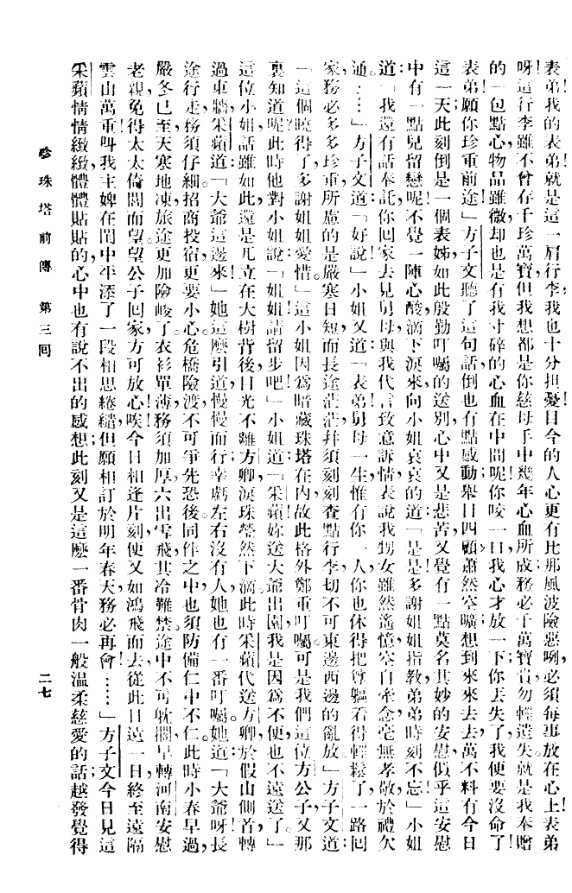 表弟我的表弟就是這一肩行李我也十分担憂目今的人心更有比那風波險惡啊必須每事放在心上表弟
呀這行李雖不曾存千珍萬寶但我想都是你慈母手中幾年心血所成務必千萬寶貴勿輕遺失就是我奉贈
的一包點心物品雖微却也是有我寸碎的心血在中間呢你咬一口我心才放一下你丢失了我便要沒命了
表弟願你珍重前途」方子文聽了這句話倒也有點感動舉目四顧蕭然空曠想到來來去去萬不料有今日
這一天此刻倒是一個表姊如此殷勤叮囑的送別心中又是悲苦又覺有一點莫名其妙的安慰似乎這安慰
中有一點兒留戀呢不覺一陣心酸滴下淚來向小姐哀哀的道「是是多謝姐姐指教弟弟時刻不忘」小姐
道「我還有話奉託你回家去見舅母與我代言致意訴情表說我甥女雖然遙憶空自牽念毫無孝敬於禮欠
通……」方子文道「好說」小姐又道「表弟舅母一生惟有你一人你也休得把尊軀看得輕鬆了一路回
家務必多多珍重所慮的是嚴寒日短而長途茫茫幷須刻刻查點行李切不可東邊西邊的亂放」方子文道
「這個曉得了多謝姐姐愛惜」這小姐因爲暗藏珠塔在內故此格外鄭重叮囑可是我們這位方公子又那
裏知道呢此時他對小姐說「姐姐請留步吧」小姐道「采蘋妳送大爺出園我是因爲不便也不遠送了」
這位小姐話雖如此還是兀立在大樹背後目光不離方卿淚珠瑩然下滴此時采蘋代送方卿於假山側首轉
過東牆采蘋道「大爺這邊來」她這麼引道慢慢而行幸虧左右沒有人她也有一番叮囑她道「大爺呀長
途行走務須仔細招商投宿更要小心危橋險渡不可爭先恐後同作之中也須防備仁中不仁此時小春早過
嚴冬已至天寒地凍旅途更加險峻了衣衫單薄務須加厚六出雪飛其冷難禁途中不可耽擱早轉河南安慰
老親免得太太倚閭而望望公子回家方可放心唉今日相逢片刻便又如鴻飛而去從此日遠一日終至遠隔
雲山萬重叫我主婢在閨中平添了一段相思綣繾但願相訂於明年春天務必再會……」方子文今日見這
采蘋情情緻緻體體貼貼的心中也有說不出的感想此刻又是這麼一番骨肉一般温柔慈愛的話越發覺得
珍珠塔前傳 第三回
二七